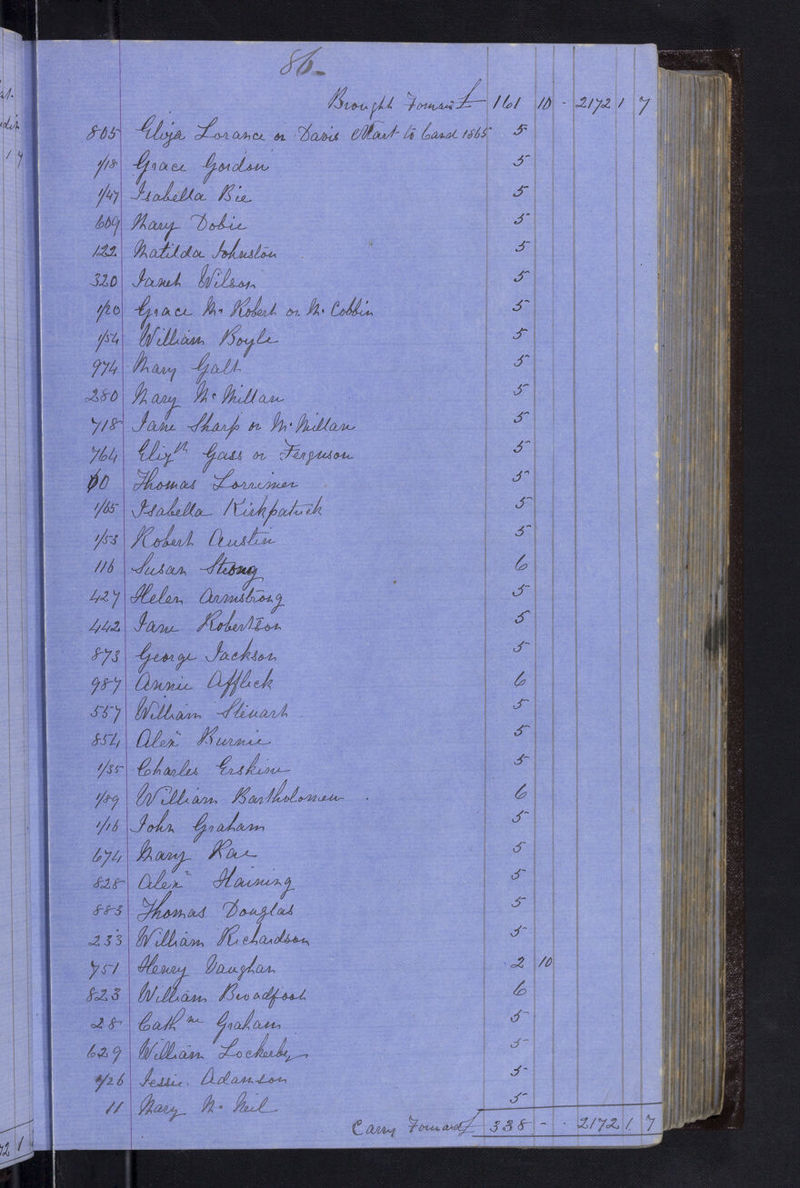 86
Brought Forward £ 161 10 - 2172 1 7
805 Eliza Lorance or Davis Mart to Cand 1865 5
1/18 Grace Gordon 5
1/47 Isabella Bie 5
609 Mary Dobie 5
122 Matilda Johnston 5
320 Janet Wilson 5
1/20 Grace Mc Robert or Mc Cobbin 5
1/54 William Boyle 5
974 Mary Galt 5
280 Mary Mc Millan 5
718 Jane Sharp or Mc Millan 5
764 Elizth Gass or Ferguson 5
00 Thomas Lorrimer 5
1/65 Isabella Kirkpatrick 5
1/53 Robert Austin 5
116 Susan Strong 6
427 Helen Armstrong 5
442 Jane Robertson 5
873 George Jackson 5
987 Annie Affleck 6
557 William Stewart 5
854 Alexr Burnie 5
1/35 Charles Erskine 5
1/89 William Bartholomew 6
1/16 John Graham 5
674 Mary Rae 5
828 Alexr Haining 5
883 Thomas Douglas 5
233 William Richardson 5
751 Henry Vaughan 2 10
823 William Broadfoot 6
28 Cathne Graham 5
629 William Lockerby 5
1/26 Jessie Adamson 5
11 Mary Mc Neil 5
Carry Forward £ 338 - - 2172 1 7